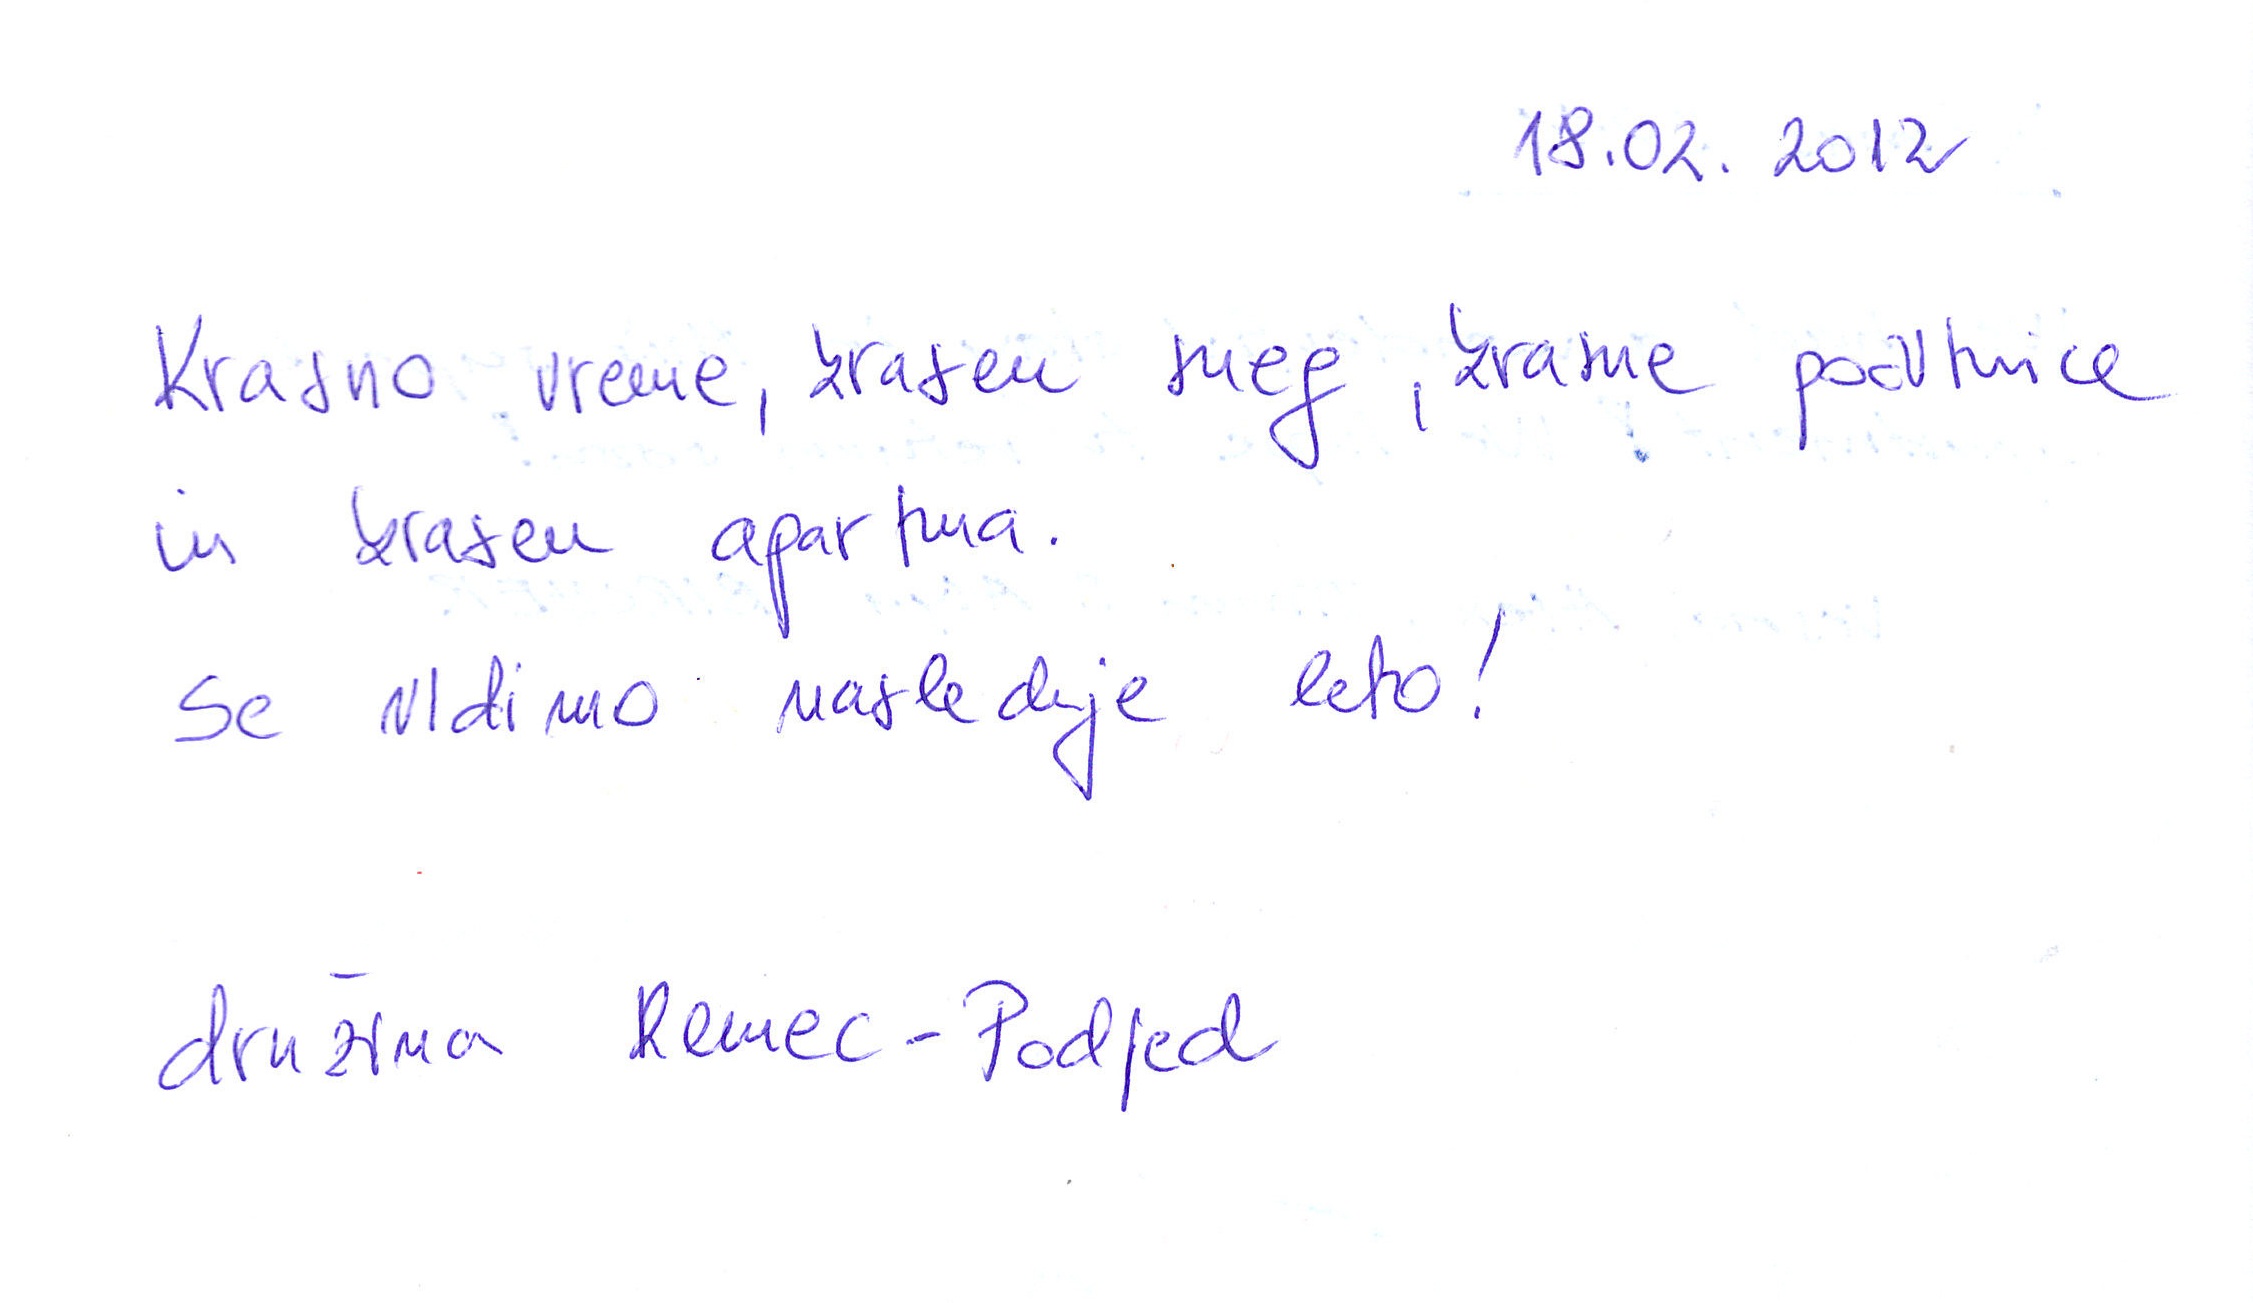 18.02.2012
Krasno vreme, krasen sneg, krasne počitnice
in krasen apartma.
Se vidimo naslednje leto!
družina Remec-Podjed